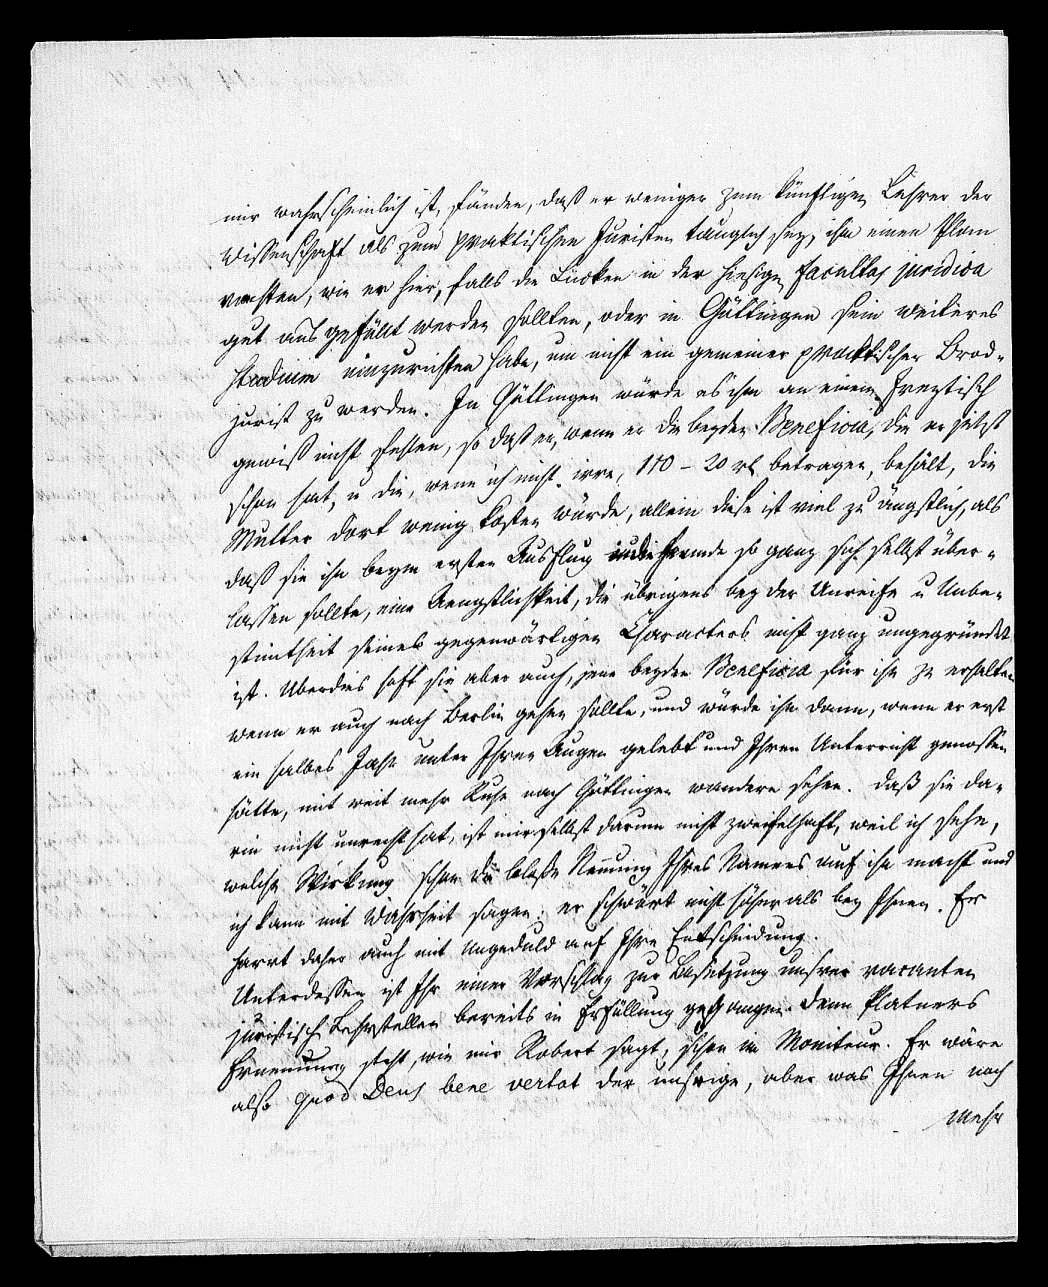 mir wahrscheinlich ist, fänden, daß er weniger zum künftigen Lehrer der
Wissenschaft als zum praktischen Juristen tauglich sey, ihm einen Plan
machten, wie er hier, falls die Lücken in der hiesigen facultas juridica
gut ausgefüllt werden sollten, oder in Göttingen sein weiteres
Studium einzurichten habe, um nicht ein gemeiner practischer Brod-
jurist zu werden. In Göttingen würde es ihm an einem Freytisch
gewiß nicht fehlen, so daß er, wenn er die beyden Beneficia, die er jetzt
schon hat, u die, wenn ich nicht irre, 110 – 20 rl betragen, behält, die
Mutter dort wenig kosten würde, allein diese ist viel zu ängstlich, als
daß sie ihn beym ersten Ausflug in die Fremde so ganz sich selbst über-
lassen sollte, eine Aengstlichkeit, die übrigens bey der Unreife u Unbe-
stimtheit seines gegenwärtigen Characters nicht ganz ungegründet
ist. Überdies hoft sie aber auch, jene beyden Beneficia für ihn zu erhalten
wenn er auch nach Berlin gehen sollte, und würde ihn dann, wenn er erst
ein halbes Jahr unter Ihren Augen gelebt und Ihren Unterricht genossen
hätte, mit weit mehr Ruhe nach Göttingen wandern sehen. Daß sie da-
rin nicht unrecht hat, ist mir selbst darum nicht zweifelhaft, weil ich sehe,
welche Wirkung schon die bloße Nennung Ihres Namens auf ihn macht und
ich kann mit Wahrheit sagen: er schwört nicht höher als bey Ihnen. Er
harrt daher auch mit Ungeduld auf Ihre Entscheidung.
Unterdessen ist Ihr einer Vorschlag zur Besetzung unsrer vacanten
juristisch Lehrstellen bereits in Erfüllung gegangen. Denn Platners
Ernennung steht, wie mir Robert sagt, schon im Moniteur. Er wäre
also quod Deus bene vertat der unsrige, aber was Ihnen noch
mehr